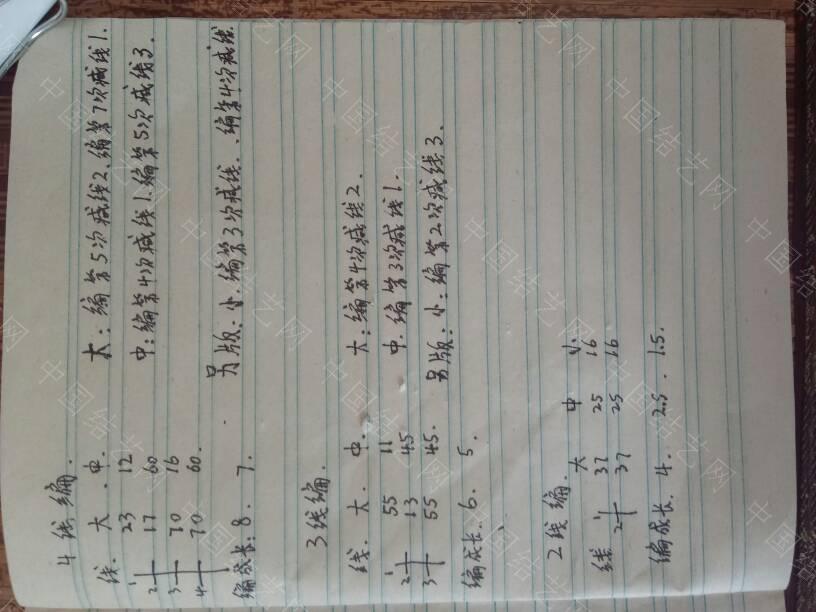 4线编.
线. 大. 中.
1 23 12
2 17 60
3 70 16
4 70 60.
编成长:8. 7.
大:编第5次减线2.编第7次减线1.
中:编第4次减线1.编第5次减线3.
另版:小.编第3次减线..编第4次减线
3线编.
线. 大. 中.
1 55 11
2 13 45
3 55 45.
编成长.6. 5.
大:编第4次减线2.
中.编第3次减线1.
另版.小:编第2次减线3.
2线编.
线 大 中 小
1 37 25 16
2 37 25 16
编成长.4. 2.5. 1.5.
中国结艺网